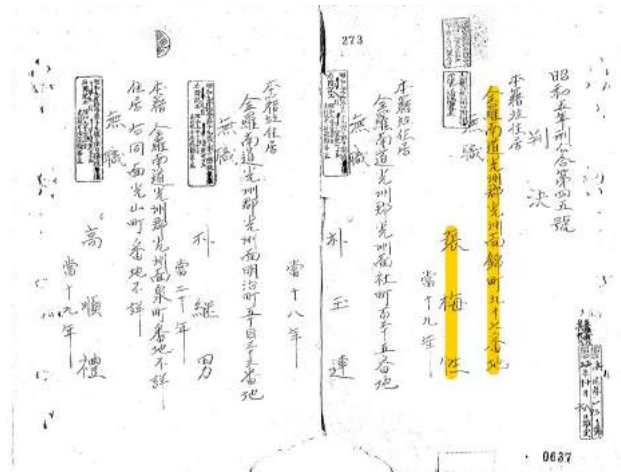 273
昭和五年刑公合第四五號
判決
本籍竝住居
全羅南道光州郡光州面錦町九十六番地
無職
張梅性
當十九年
本籍竝住居
全羅南道光州郡光州面社町百三十五番地
無職
朴玉連
當十八年
本籍竝住居
全羅南道光州郡光州面明治町五丁目三十三番地
無職
朴継男
當二十年
本籍 全羅南道光州郡光州面泉町番地不詳
住居 右同面光山町番地不詳
無職
高順禮
當十九年
0637